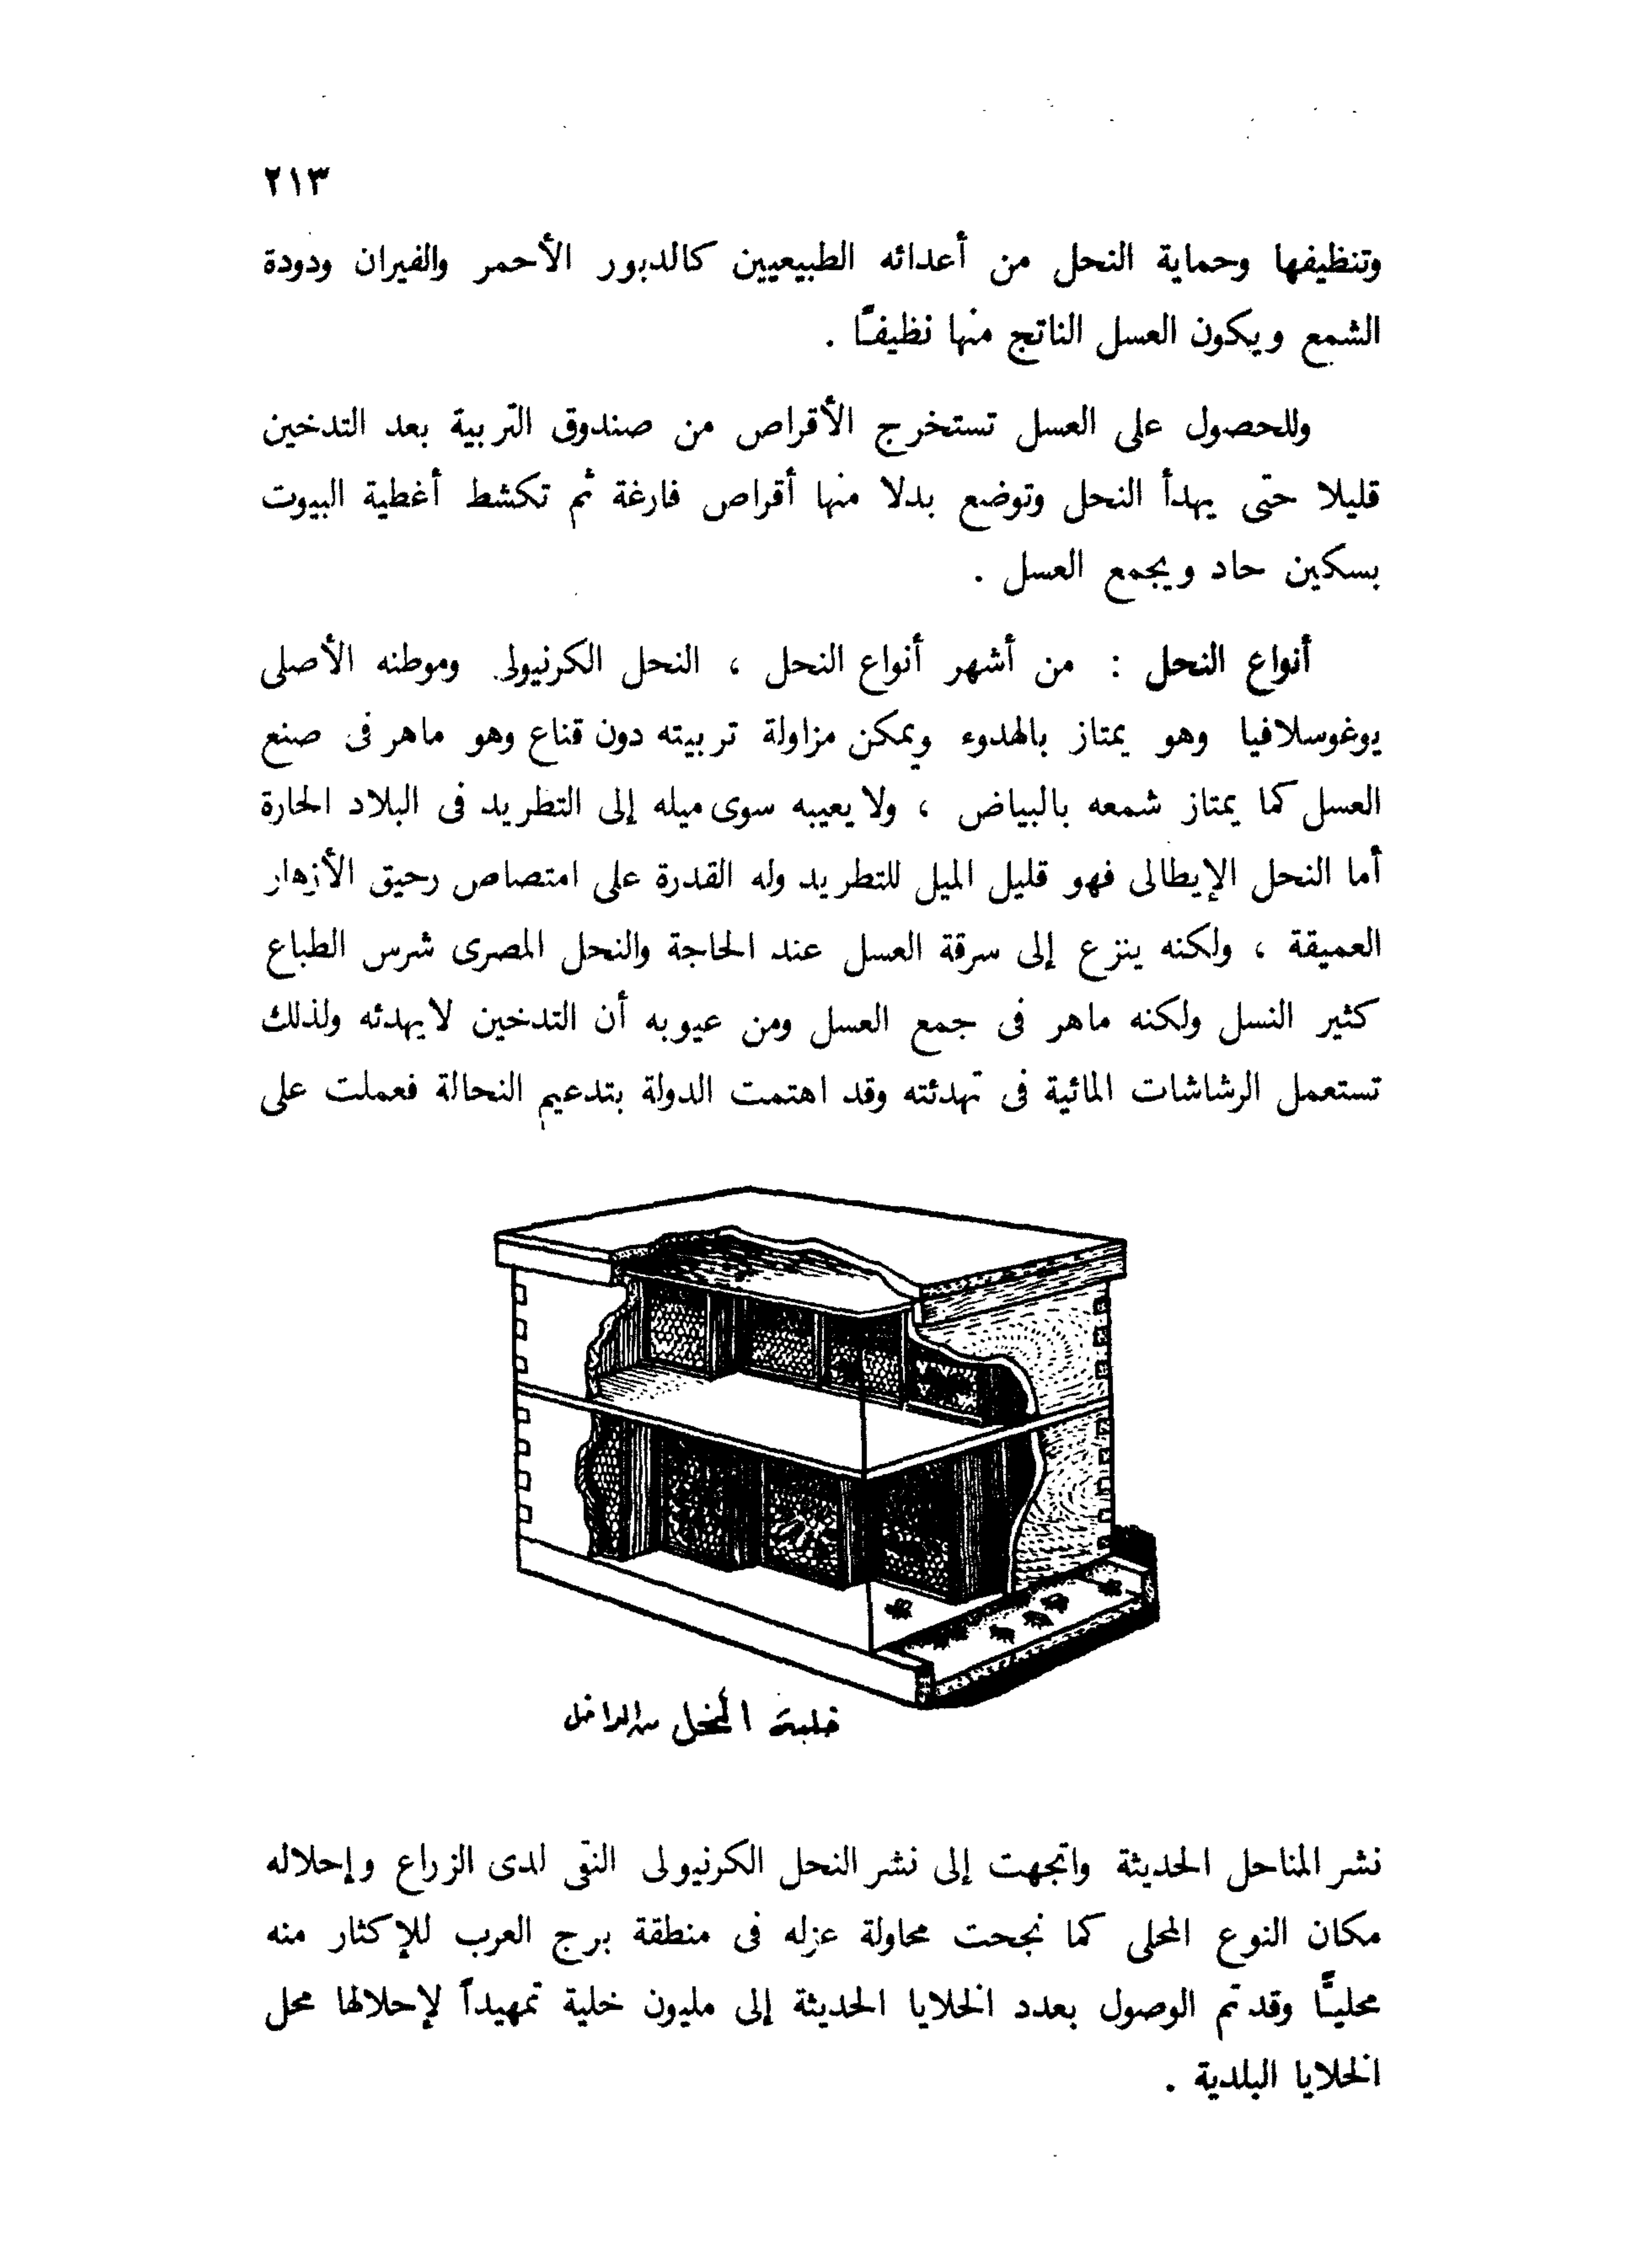 ٢١٣
وتنظيفها وحماية النحل من أعدائه الطبيعيين كالدبور الأحمر والفيران ودودة
الشمع ويكون العسل الناتج منها نظيفـًا .
وللحصول على العسل تستخرج الأقراص من صندوق التربية بعد التدخين
قليلا حتى يهدأ النحل وتوضع بدلا منها أقراص فارغة ثم تكشط أغطية البيوت
بسكين حاد ويجمع العسل .
أنواع النحل : من أشهر أنواع النحل ، النحل الكرنيولى وموطنه الأصلى
يوغوسلافيا وهو يمتاز بالهدوء ويمكن مزاولة تربيته دون قناع وهو ماهر فى صنع
العسل كما يمتاز شمعه بالبياض ، ولا يعيبه سوى ميله إلى التطريد فى البلاد الحارة
أما النحل الإيطالى فهو قليل الميل للتطريد وله القدرة على امتصاص رحيق الأزهار
العميقة ، ولكنه ينزع إلى سرقة العسل عند الحاجة والنحل المصرى شرس الطباع
كثير النسل ولكنه ماهر فى جمع العسل ومن عيوبه أن التدخين لا يهدئه ولذلك
تستعمل الرشاشات المائية فى تهدئته وقد اهتمت الدولة بتدعيم النحالة فعملت على
خلية النحل من الداخل
نشر المناحل الحديثة واتجهت إلى نشر النحل الكرنيولى النقى لدى الزراع وإحلاله
مكان النوع المحلى كما نجحت محاولة عزله فى منطقة برج العرب للإكثار منه
محليـًّا وقد تم الوصول بعدد الخلايا الحديثة إلى مليون خلية تمهيداً لإحلالها محل
الخلايا البلدية .